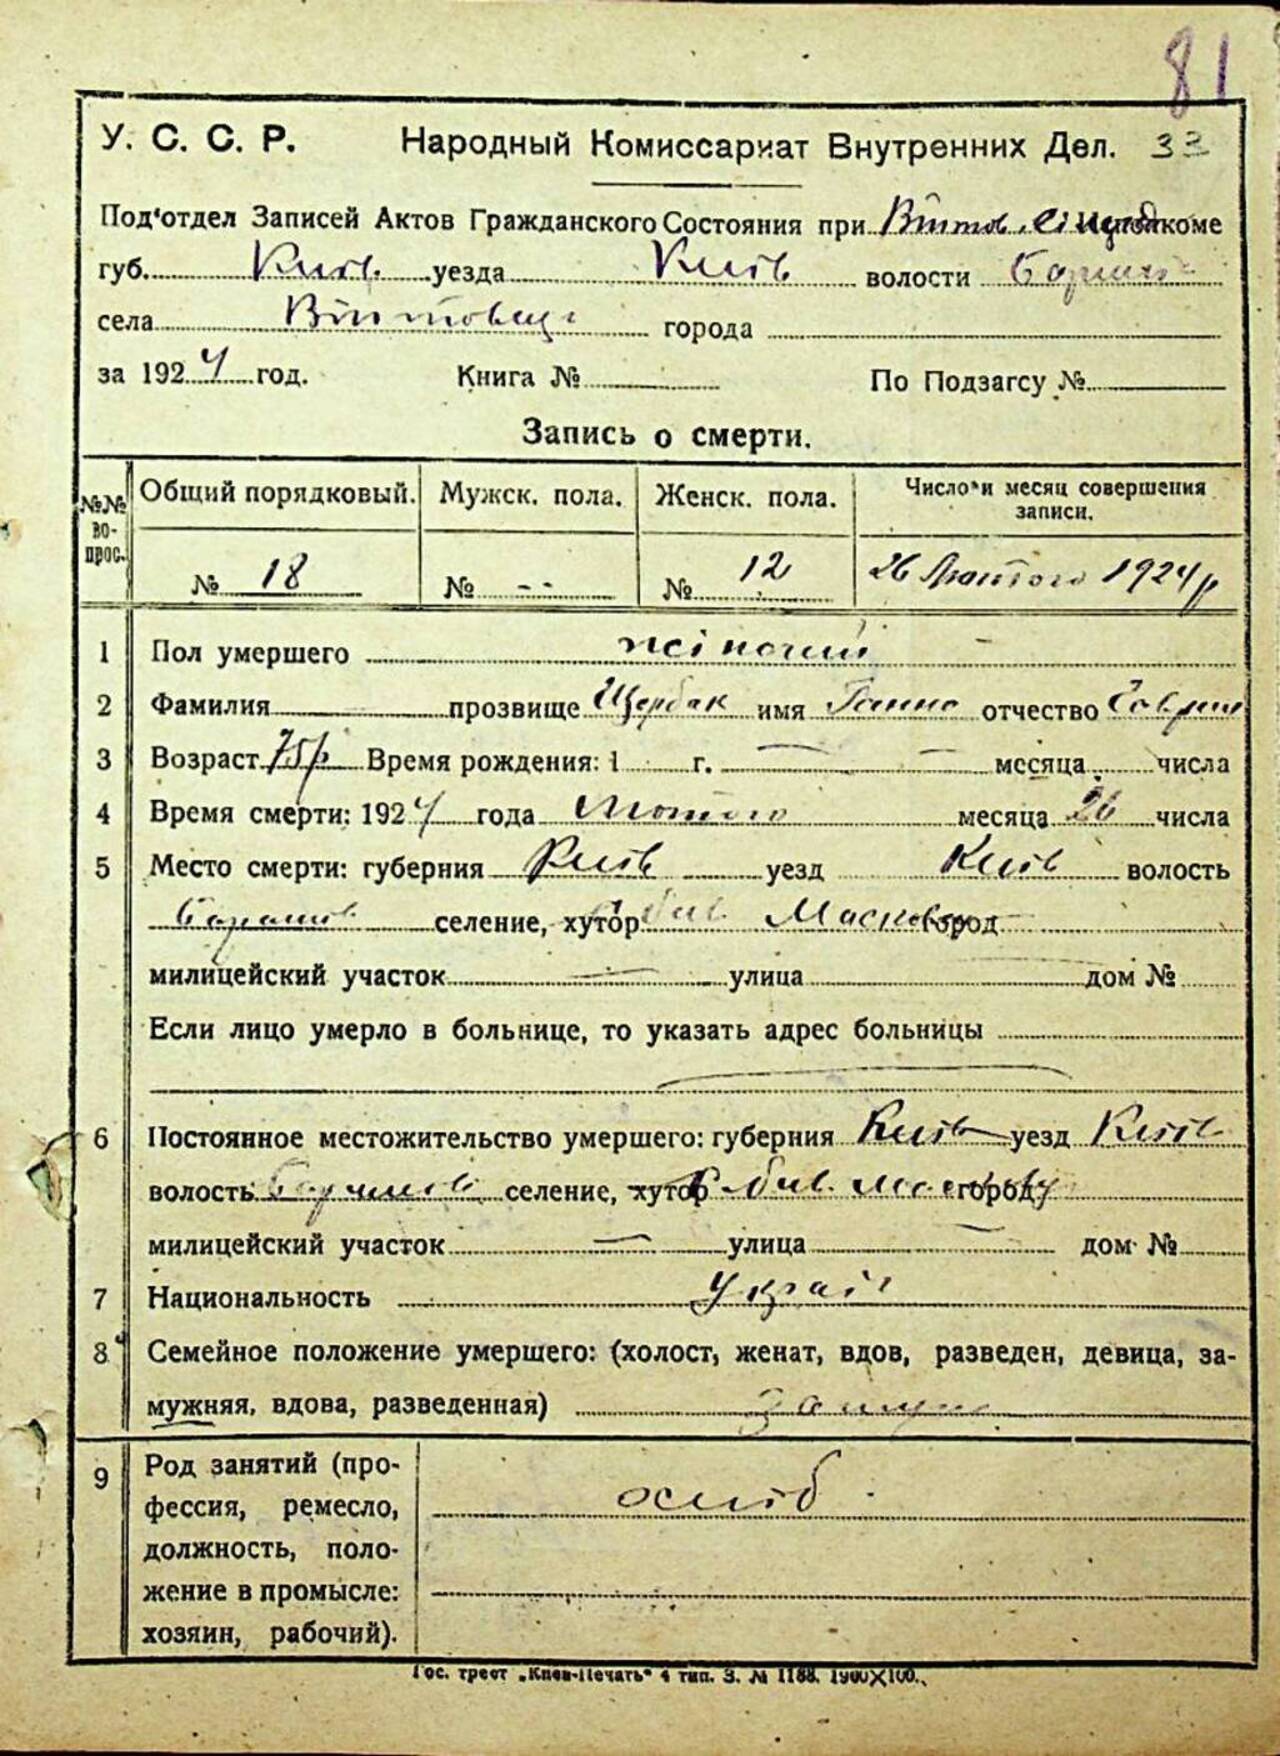 81
У. С. С. Р. Народный Комиссариат Внутренних Дел. 33
Под'отдел Записей Актов Гражданского Состояния при Исполкоме
губ. Київ. уезда Київ волости
села города
за 1924 год. Книга № По Подзагсу №
Запись о смерти.
№№ вопрос. Общий порядковый. Мужск. пола. Женск. пола. Число и месяц совершения записи.
№ 18 № -- № 12 26 Лютого 1924 р
1 Пол умершего жіночий
2 Фамилия прозвище Щербак имя Ганна отчество
3 Возраст 75 р Время рождения: 1 г. месяца числа
4 Время смерти: 1924 года Лютого месяца 26 числа
5 Место смерти: губерния Київ уезд Київ волость
селение, хутор город
милицейский участок улица дом №
Если лицо умерло в больнице, то указать адрес больницы
6 Постоянное местожительство умершего: губерния Київ уезд Київ
волость селение, хутор город
милицейский участок улица дом №
7 Национальность Украін
8 Семейное положение умершего: (холост, женат, вдов, разведен, девица, за-
мужняя, вдова, разведенная) замуж
9 Род занятий (про-
фессия, ремесло,
должность, поло-
жение в промысле:
хозяин, рабочий).
хліб
Гос. трест „Киев-Печать“ 4 тип. З. № 1188. 1900X100.